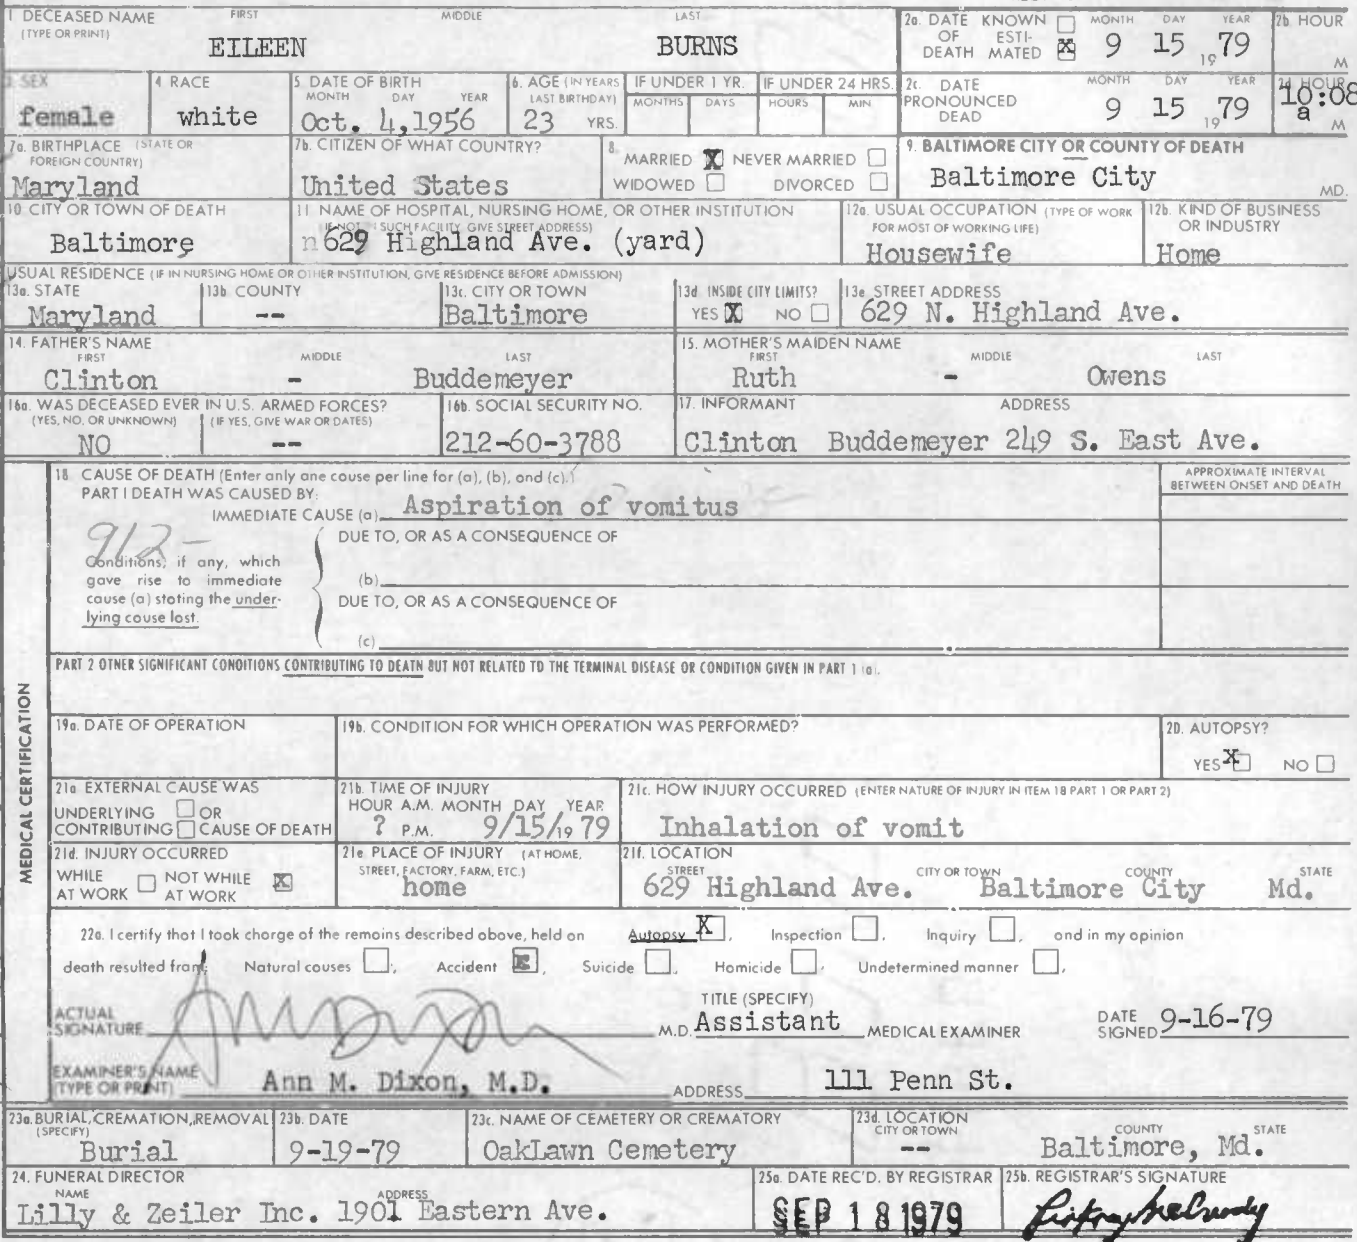 1 DECEASED NAME FIRST MIDDLE LAST
(TYPE OR PRINT)
EILEEN BURNS
2a. DATE KNOWN ☐ MONTH DAY YEAR
OF ESTI-
DEATH MATED ☒ 9 15 19 79
2b HOUR
M
3 SEX
female
4 RACE
white
5 DATE OF BIRTH
MONTH DAY YEAR
Oct. 4,1956
6. AGE (IN YEARS
LAST BIRTHDAY)
23 YRS.
IF UNDER 1 YR.
MONTHS DAYS
IF UNDER 24 HRS.
HOURS MIN
2c. DATE MONTH DAY YEAR
PRONOUNCED
DEAD 9 15 19 79
2d HOUR
10:08
a M
7a. BIRTHPLACE (STATE OR
FOREIGN COUNTRY)
Maryland
7b. CITIZEN OF WHAT COUNTRY?
United States
8.
MARRIED ☒ NEVER MARRIED ☐
WIDOWED ☐ DIVORCED ☐
9. BALTIMORE CITY OR COUNTY OF DEATH
Baltimore City MD.
10 CITY OR TOWN OF DEATH
Baltimore
11 NAME OF HOSPITAL, NURSING HOME, OR OTHER INSTITUTION
(IF NOT SUCH FACILITY, GIVE STREET ADDRESS)
n629 Highland Ave. (yard)
12a. USUAL OCCUPATION (TYPE OF WORK
FOR MOST OF WORKING LIFE)
Housewife
12b. KIND OF BUSINESS
OR INDUSTRY
Home
USUAL RESIDENCE (IF IN NURSING HOME OR OTHER INSTITUTION, GIVE RESIDENCE BEFORE ADMISSION)
13a. STATE
Maryland
13b COUNTY
--
13c. CITY OR TOWN
Baltimore
13d INSIDE CITY LIMITS?
YES ☒ NO ☐
13e STREET ADDRESS
629 N. Highland Ave.
14. FATHER'S NAME
FIRST MIDDLE LAST
Clinton - Buddemeyer
15. MOTHER'S MAIDEN NAME
FIRST MIDDLE LAST
Ruth - Owens
16a. WAS DECEASED EVER IN U.S. ARMED FORCES?
(YES, NO, OR UNKNOWN) (IF YES, GIVE WAR OR DATES)
NO --
16b. SOCIAL SECURITY NO.
212-60-3788
17. INFORMANT ADDRESS
Clinton Buddemeyer 249 S. East Ave.
MEDICAL CERTIFICATION
18. CAUSE OF DEATH (Enter only one cause per line for (a), (b), and (c).)
PART I DEATH WAS CAUSED BY:
IMMEDIATE CAUSE (a) Aspiration of vomitus
APPROXIMATE INTERVAL
BETWEEN ONSET AND DEATH
912-
Conditions, if any, which
gave rise to immediate
cause (a) stating the under-
lying cause last.
DUE TO, OR AS A CONSEQUENCE OF
(b)
DUE TO, OR AS A CONSEQUENCE OF
(c)
PART 2 OTHER SIGNIFICANT CONDITIONS CONTRIBUTING TO DEATH BUT NOT RELATED TO THE TERMINAL DISEASE OR CONDITION GIVEN IN PART 1 (a).
19a. DATE OF OPERATION
19b. CONDITION FOR WHICH OPERATION WAS PERFORMED?
20. AUTOPSY?
YES ☒ NO ☐
21a EXTERNAL CAUSE WAS
UNDERLYING ☐ OR
CONTRIBUTING ☐ CAUSE OF DEATH
21b. TIME OF INJURY
HOUR A.M. MONTH DAY YEAR
? P.M. 9/15/19 79
21c. HOW INJURY OCCURRED (ENTER NATURE OF INJURY IN ITEM 18 PART 1 OR PART 2)
Inhalation of vomit
21d. INJURY OCCURRED
WHILE ☐ NOT WHILE ☒
AT WORK AT WORK
21e PLACE OF INJURY (AT HOME,
STREET, FACTORY, FARM, ETC.)
home
21f. LOCATION
STREET CITY OR TOWN COUNTY STATE
629 Highland Ave. Baltimore City Md.
22a. I certify that I took charge of the remains described above, held on Autopsy ☒, Inspection ☐, Inquiry ☐, and in my opinion
death resulted from: Natural causes ☐, Accident ☒, Suicide ☐, Homicide ☐, Undetermined manner ☐,
ACTUAL
SIGNATURE M.D.
TITLE (SPECIFY)
Assistant MEDICAL EXAMINER
DATE
SIGNED 9-16-79
EXAMINER'S NAME
(TYPE OR PRINT) Ann M. Dixon, M.D. ADDRESS 111 Penn St.
23a. BURIAL, CREMATION, REMOVAL
(SPECIFY)
Burial
23b. DATE
9-19-79
23c. NAME OF CEMETERY OR CREMATORY
OakLawn Cemetery
23d. LOCATION
CITY OR TOWN COUNTY STATE
-- Baltimore, Md.
24. FUNERAL DIRECTOR
NAME ADDRESS
Lilly & Zeiler Inc. 1901 Eastern Ave.
25a. DATE REC'D. BY REGISTRAR
SEP 18 1979
25b. REGISTRAR'S SIGNATURE